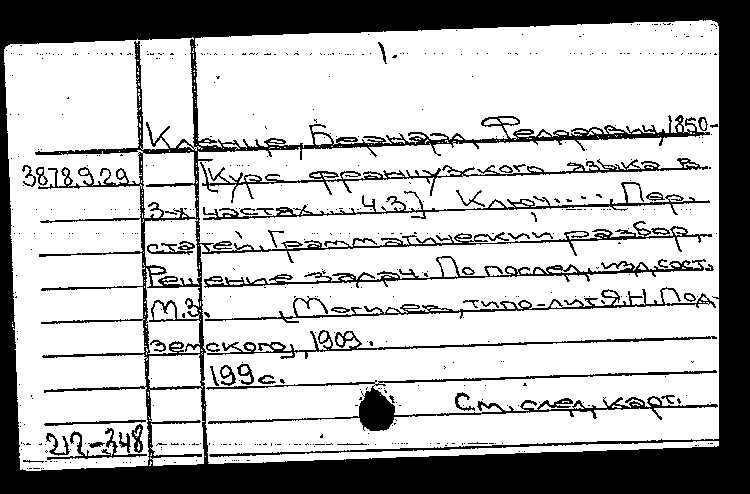 1.
Кленце, Бернард Федорович, 1850-
3878.9.29. [Курс французского языка в
3-х частях.... Ч.3.] Ключ....; Пер.
статей. Грамматический разбор,
Решение задач. По послед. изд. сост.
М.З. Могилев, типо-лит. Я.Н. Под-
земского, 1909.
199 с.
См. след. карт.
212-348